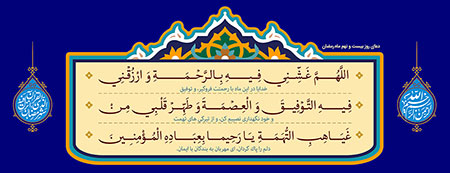 دعای روز بیست و نهم ماه رمضان
اللَّهُمَّ غَشِّنِي فِيهِ بِالرَّحْمَةِ وَ ارْزُقْنِي
خدایا در این ماه با رحمتت فروگیر، و توفیق
فِيهِ التَّوْفِيقَ وَ الْعِصْمَةَ وَ طَهِّرْ قَلْبِي مِنْ
و خود نگهداری نصیبم کن، و از تیرگی های تهمت
غَيَاهِبِ التُّهَمَةِ يَا رَحِيما بِعِبَادِهِ الْمُؤْمِنِينَ
دلم را پاک گردان، ای مهربان به بندگان با ایمان.